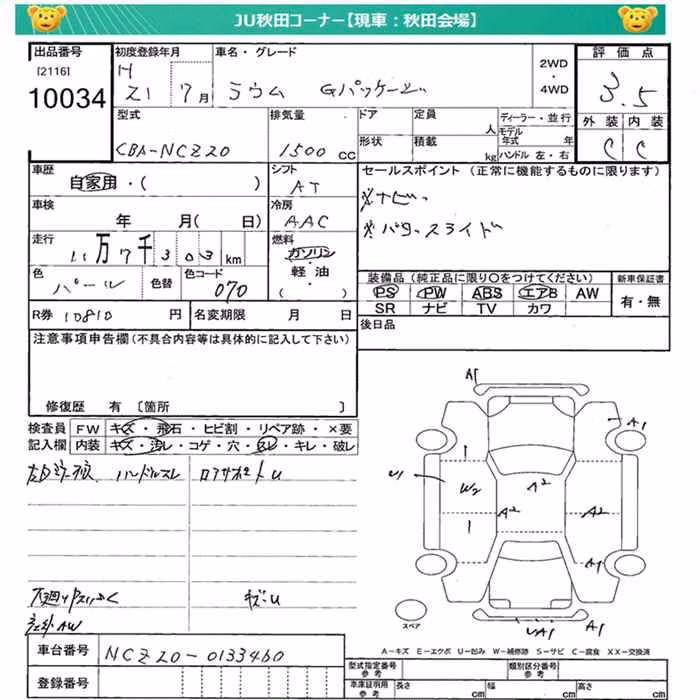 JU秋田コーナー【現車：秋田会場】
出品番号
[2116]
10034
初度登録年月
H 21 7月
車名・グレード
ラウム Gパッケージ
2WD
・
4WD
評価点
3.5
外装 内装
C C
型式
CBA-NCZ20
排気量
1500 CC
ドア
形状
定員 人
積載 kg
ディーラー・並行
モデル年式 年
ハンドル 左・右
車歴
自家用・( )
シフト
AT
セールスポイント (正常に機能するものに限ります)
※ナビ
※パワースライド
車検
年 月( 日)
冷房
AAC
走行
11万7千303km
燃料
ガソリン
・
軽・油
・
( )
色
パール
色替
色コード
070
装備品 (純正品に限り〇をつけてください)
新車保証書
PS PW ABS エアB AW
SR ナビ TV カワ
有・無
R券 10810 円
名変期限 月 日
後日品
注意事項申告欄 (不具合内容等は具体的に記入して下さい)
修復歴 有 〔箇所 〕
検査員記入欄
FW キズ・飛石・ヒビ割・リペア跡・×要
内装 キズ・汚レ・コゲ・穴・スレ・キレ・破レ
ハンドルスレ
ロアサポートU
キズU
A1
A1
U1
W2
A2
A2
A2
A1
UA1
スペア
A－キズ E－エクボ U－凹み W－補修跡 S－サビ C－腐食 XX－交換済
車台番号
NCZ20-0133460
登録番号
型式指定番号 参考
類別区分番号 参考
車庫証明用 参考
長さ cm
幅 cm
高さ cm